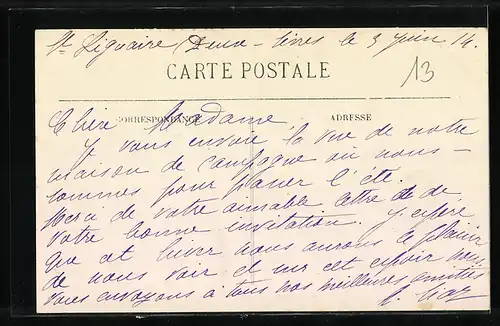 St Liguaire (Deux-Sèvres le 3 Juin 14.
CARTE POSTALE
13
CORRESPONDANCE
ADRESSE
Chère Madame,
J vous envoie la vue de notre
maison de campagne où nous
sommes pour passer l'été.
Merci de votre aimable lettre et de
votre bonne invitation. J'espère
que cet hiver nous aurons le plaisir
de nous voir et sur cet espoir nous
vous envoyons à tous nos meilleures amitiés